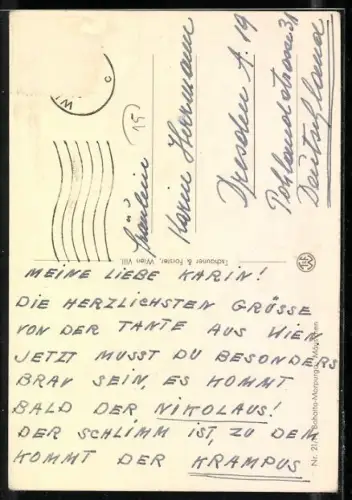 MEINE LIEBE KARIN!
DIE HERZLICHSTEN GRÜSSE
VON DER TANTE AUS WIEN
JETZT MUSST DU BESONDERS
BRAV SEIN, ES KOMMT
BALD DER NIKOLAUS!
DER SCHLIMM IST, ZU DEM
KOMMT DER KRAMPUS
Fräulein
15
Karin Herrmann
Dresden A. 19
Pohlandstrasse 31
Deutschland
Tschauner & Forster, Wien VIII.